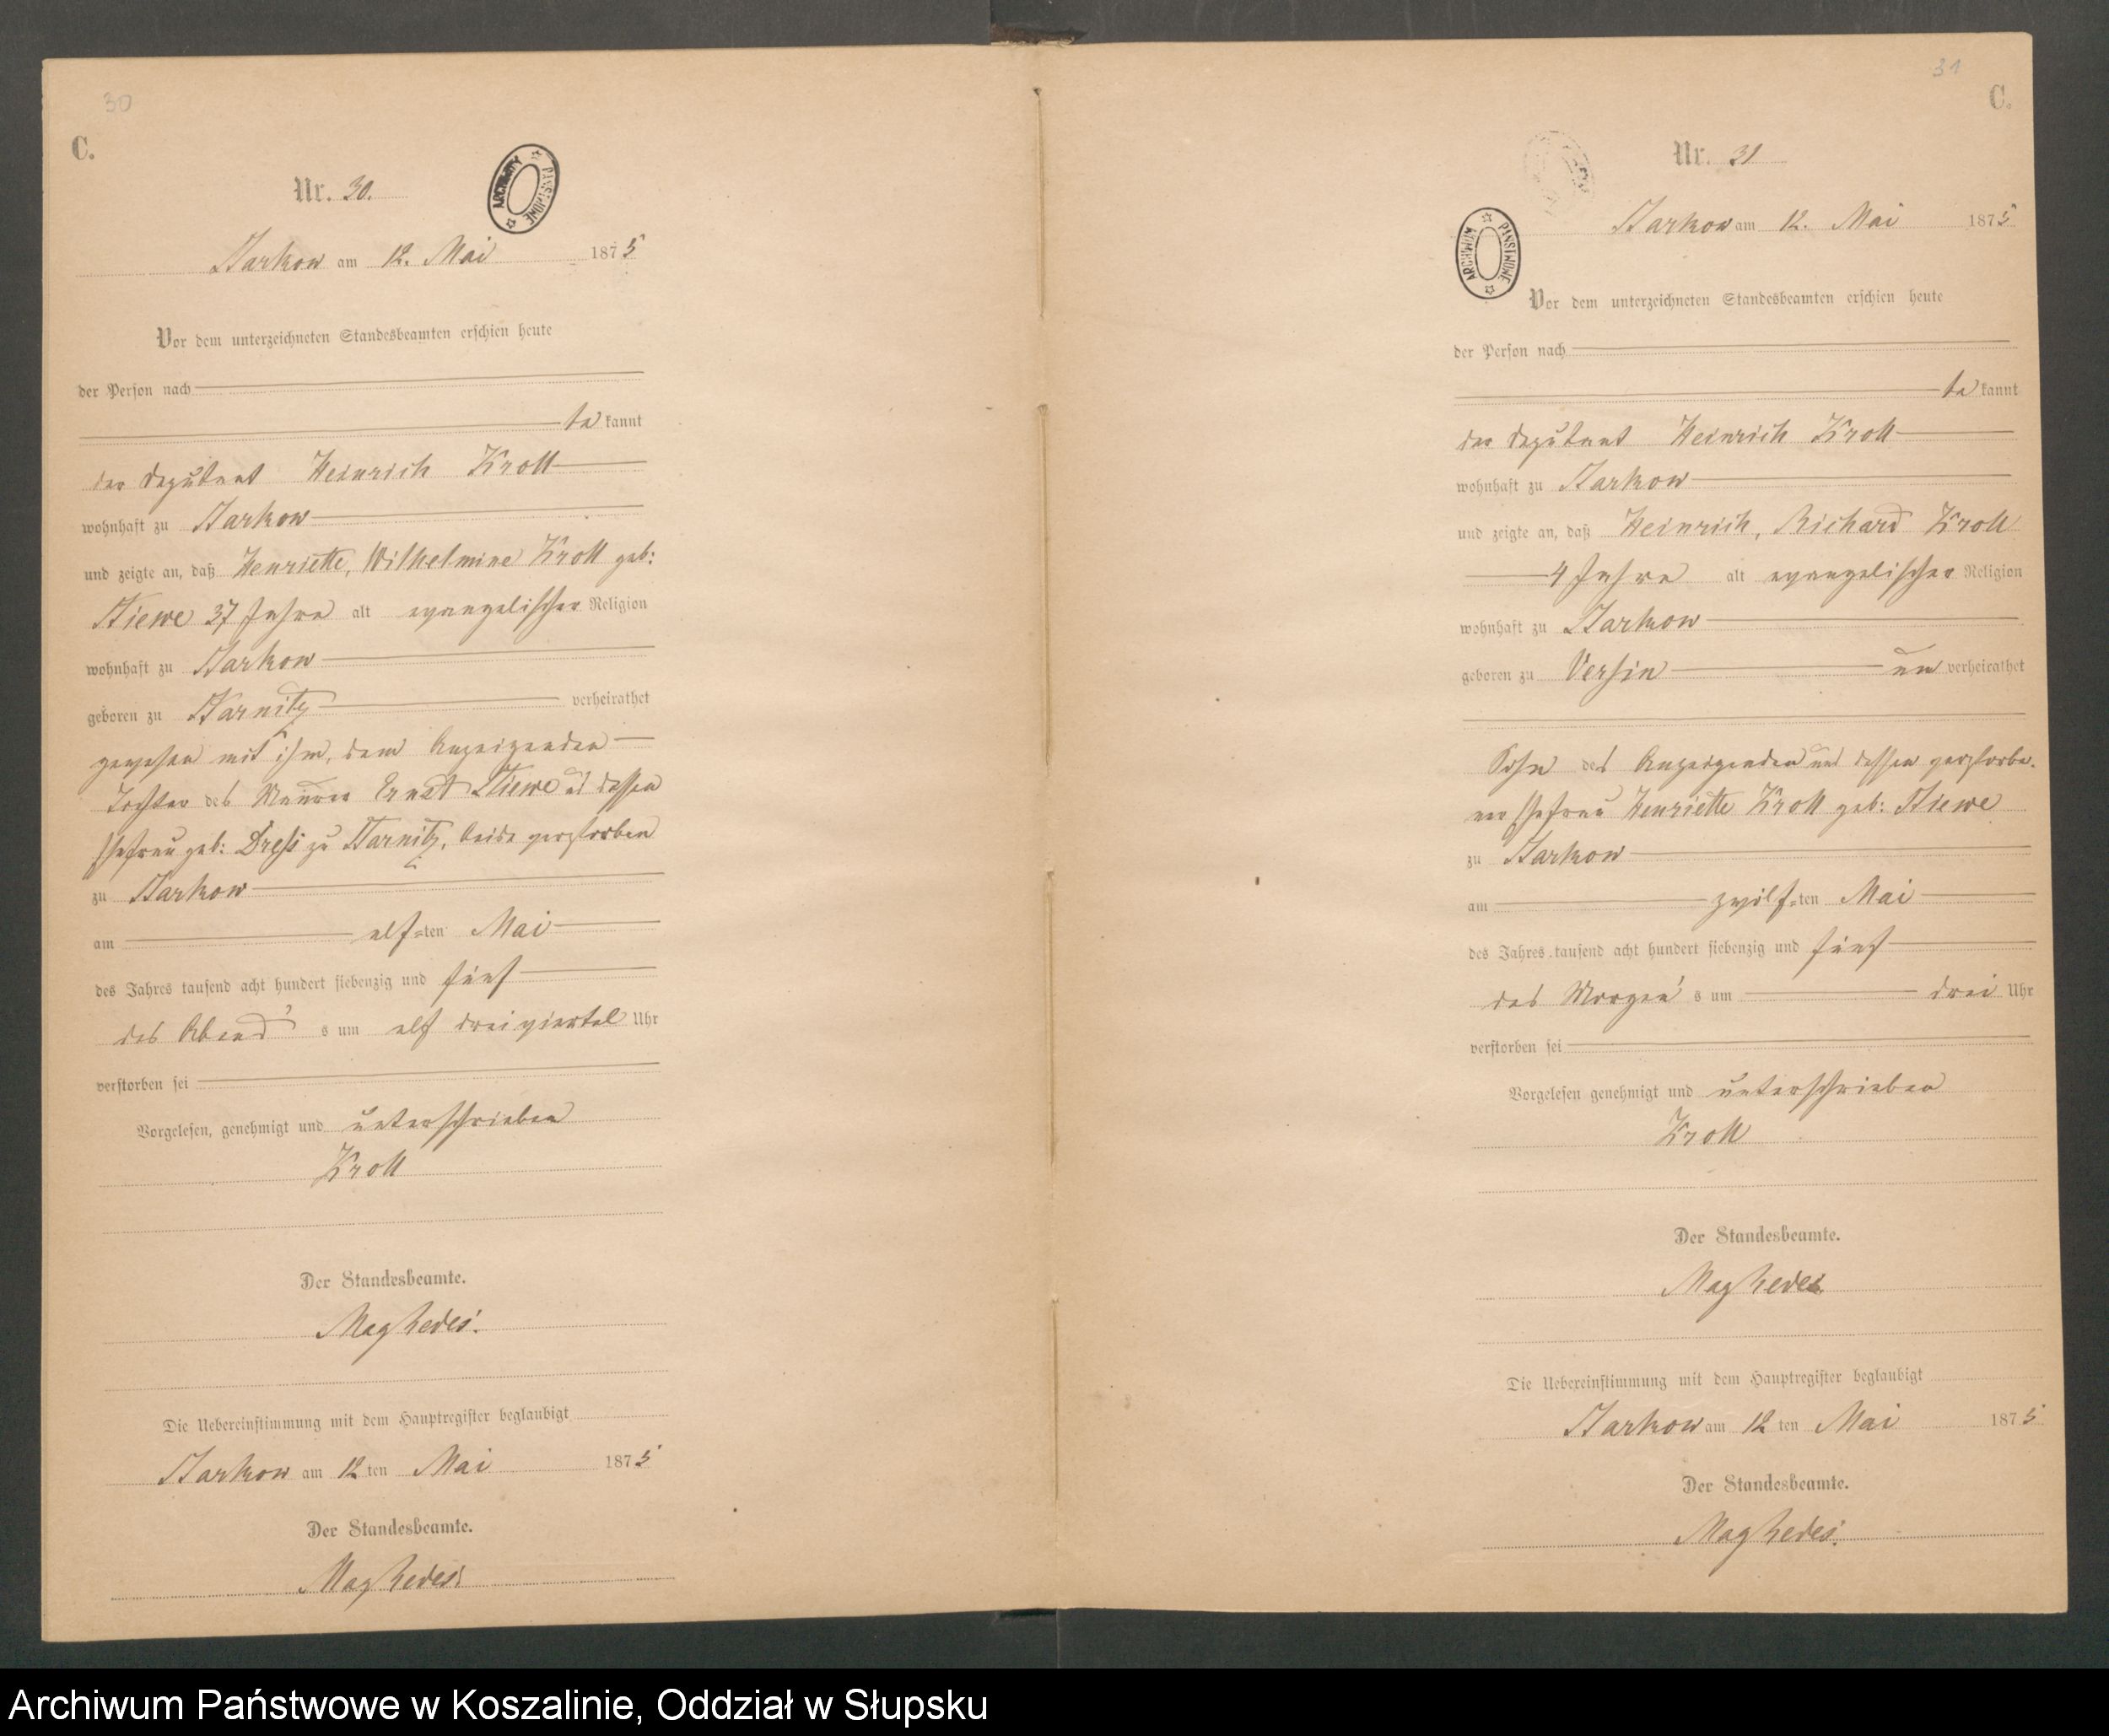 30
C.
Nr. 30.
ARCHIWUM PAŃSTWOWE
Starkow am 12. Mai 1875
Vor dem unterzeichneten Standesbeamten erschien heute
der Person nach
be kannt
der Deputant Heinrich Kroll
wohnhaft zu Starkow
und zeigte an, daß Henriette, Wilhelmine Kroll geb:
Stiewe 37 Jahre alt evangelischer Religion
wohnhaft zu Starkow
geboren zu Starnitz verheirathet
gewesen mit ihm, dem Anzeigenden
Tochter des Maurer Ernst Stiewe und dessen
Ehefrau geb: zu Starnitz, beide verstorben
zu Starkow
am elf-ten Mai
des Jahres tausend acht hundert siebenzig und fünf
des Abend s um elf dreiviertel Uhr
verstorben sei
Vorgelesen, genehmigt und unterschrieben
Kroll
Der Standesbeamte.
Die Uebereinstimmung mit dem Hauptregister beglaubigt
Starkow am 12 ten Mai 1875
Der Standesbeamte.
31
C.
Nr. 31
Starkow am 12. Mai 1875
ARCHIWUM PAŃSTWOWE
Vor dem unterzeichneten Standesbeamten erschien heute
der Person nach
be kannt
der Deputant Heinrich Kroll
wohnhaft zu Starkow
und zeigte an, daß Heinrich, Richard Kroll
4 Jahre alt evangelischer Religion
wohnhaft zu Starkow
geboren zu Versin un verheirathet
Sohn des Anzeigenden und dessen verstorbe-
nen Ehefrau Henriette Kroll geb: Stiewe
zu Starkow
am zwölf-ten Mai
des Jahres tausend acht hundert siebenzig und fünf
des Morgen s um drei Uhr
verstorben sei
Vorgelesen genehmigt und unterschrieben
Kroll
Der Standesbeamte.
Die Uebereinstimmung mit dem Hauptregister beglaubigt
Starkow am 12 ten Mai 1875
Der Standesbeamte.
Archiwum Państwowe w Koszalinie, Oddział w Słupsku